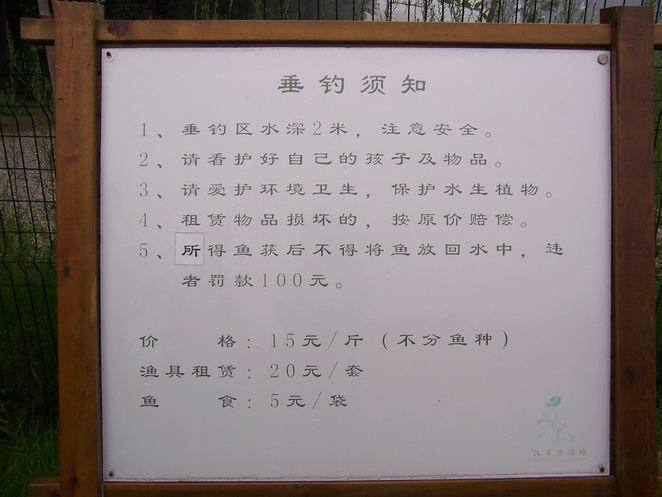 垂钓须知
1、垂钓区水深2米，注意安全。
2、请看护好自己的孩子及物品。
3、请爱护环境卫生，保护水生植物。
4、租赁物品损坏的，按原价赔偿。
5、所得鱼获后不得将鱼放回水中，违
者罚款100元。
价　　格：15元/斤（不分鱼种）
渔具租赁：20元/套
鱼　　食：5元/袋